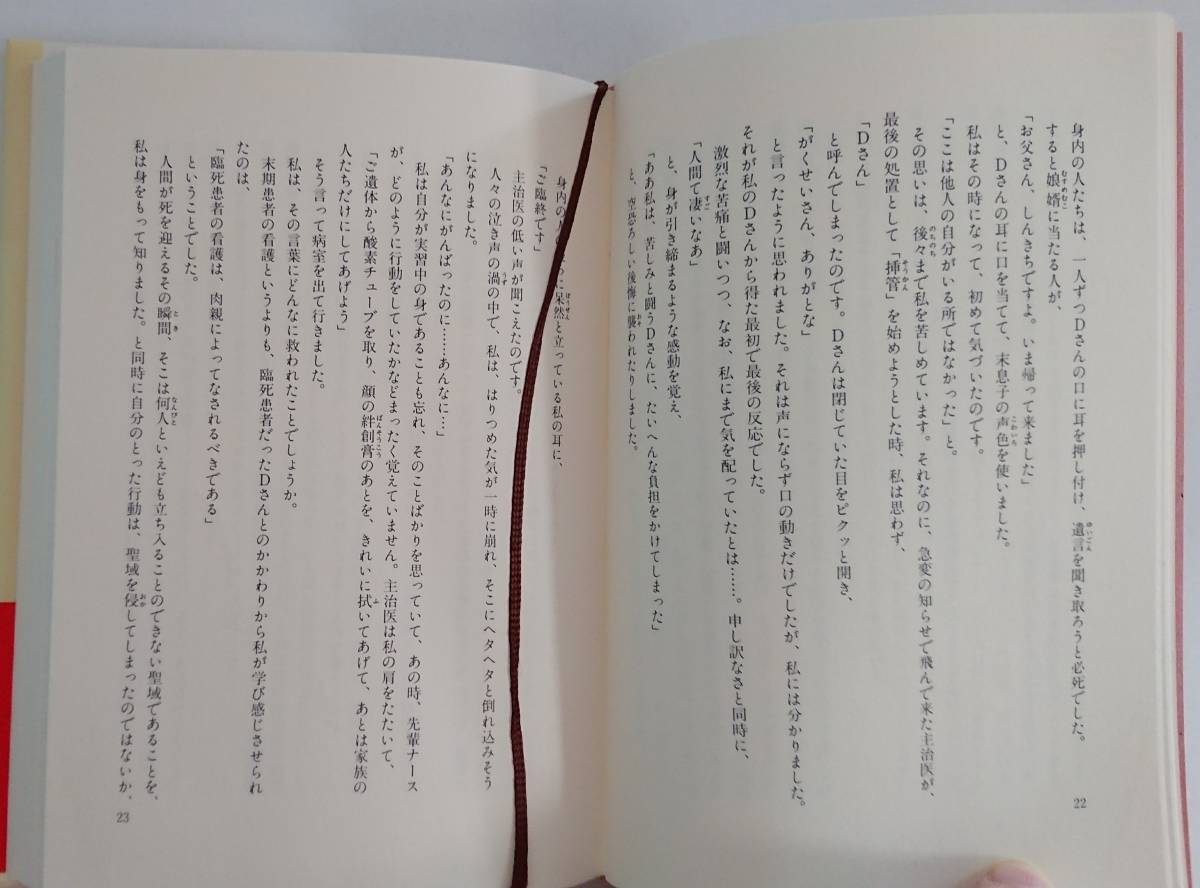 身内の人たちは、一人ずつDさんの口に耳を押し付け、遺言を聞き取ろうと必死でした。
すると娘婿に当たる人が、
「お父さん、しんきちですよ。いま帰って来ました」
と、Dさんの耳に口を当てて、末息子の声色を使いました。
私はその時になって、初めて気づいたのです。
「ここは他人の自分がいる所ではなかった」と。
その思いは、後々まで私を苦しめています。それなのに、急変の知らせで飛んで来た主治医が、
最後の処置として「挿管」を始めようとした時、私は思わず、
「Dさん」
と呼んでしまったのです。Dさんは閉じていた目をピクッと開き、
「がくせいさん、ありがとな」
と言ったように思われました。それは声にならず口の動きだけでしたが、私には分かりました。
それが私のDさんから得た最初で最後の反応でした。
激烈な苦痛と闘いつつ、なお、私にまで気を配っていたとは……。申し訳なさと同時に、
「人間て凄いなあ」
と、身が引き締まるような感動を覚え、
「ああ私は、苦しみと闘うDさんに、たいへんな負担をかけてしまった」
と、空恐ろしい後悔に襲われたりしました。
22
身内の人の に呆然と立っている私の耳に、
「ご臨終です」
主治医の低い声が聞こえたのです。
人々の泣き声の渦の中で、私は、はりつめた気が一時に崩れ、そこにヘタヘタと倒れ込みそう
になりました。
「あんなにがんばったのに……あんなに…」
私は自分が実習中の身であることも忘れ、そのことばかりを思っていて、あの時、先輩ナース
が、どのように行動をしていたかなどまったく覚えていません。主治医は私の肩をたたいて、
「ご遺体から酸素チューブを取り、顔の絆創膏のあとを、きれいに拭いてあげて、あとは家族の
人たちだけにしてあげよう」
そう言って病室を出て行きました。
私は、その言葉にどんなに救われたことでしょうか。
末期患者の看護というよりも、臨死患者だったDさんとのかかわりから私が学び感じさせられ
たのは、
「臨死患者の看護は、肉親によってなされるべきである」
ということでした。
人間が死を迎えるその瞬間、そこは何人といえども立ち入ることのできない聖域であることを、
私は身をもって知りました。と同時に自分のとった行動は、聖域を侵してしまったのではないか、
23